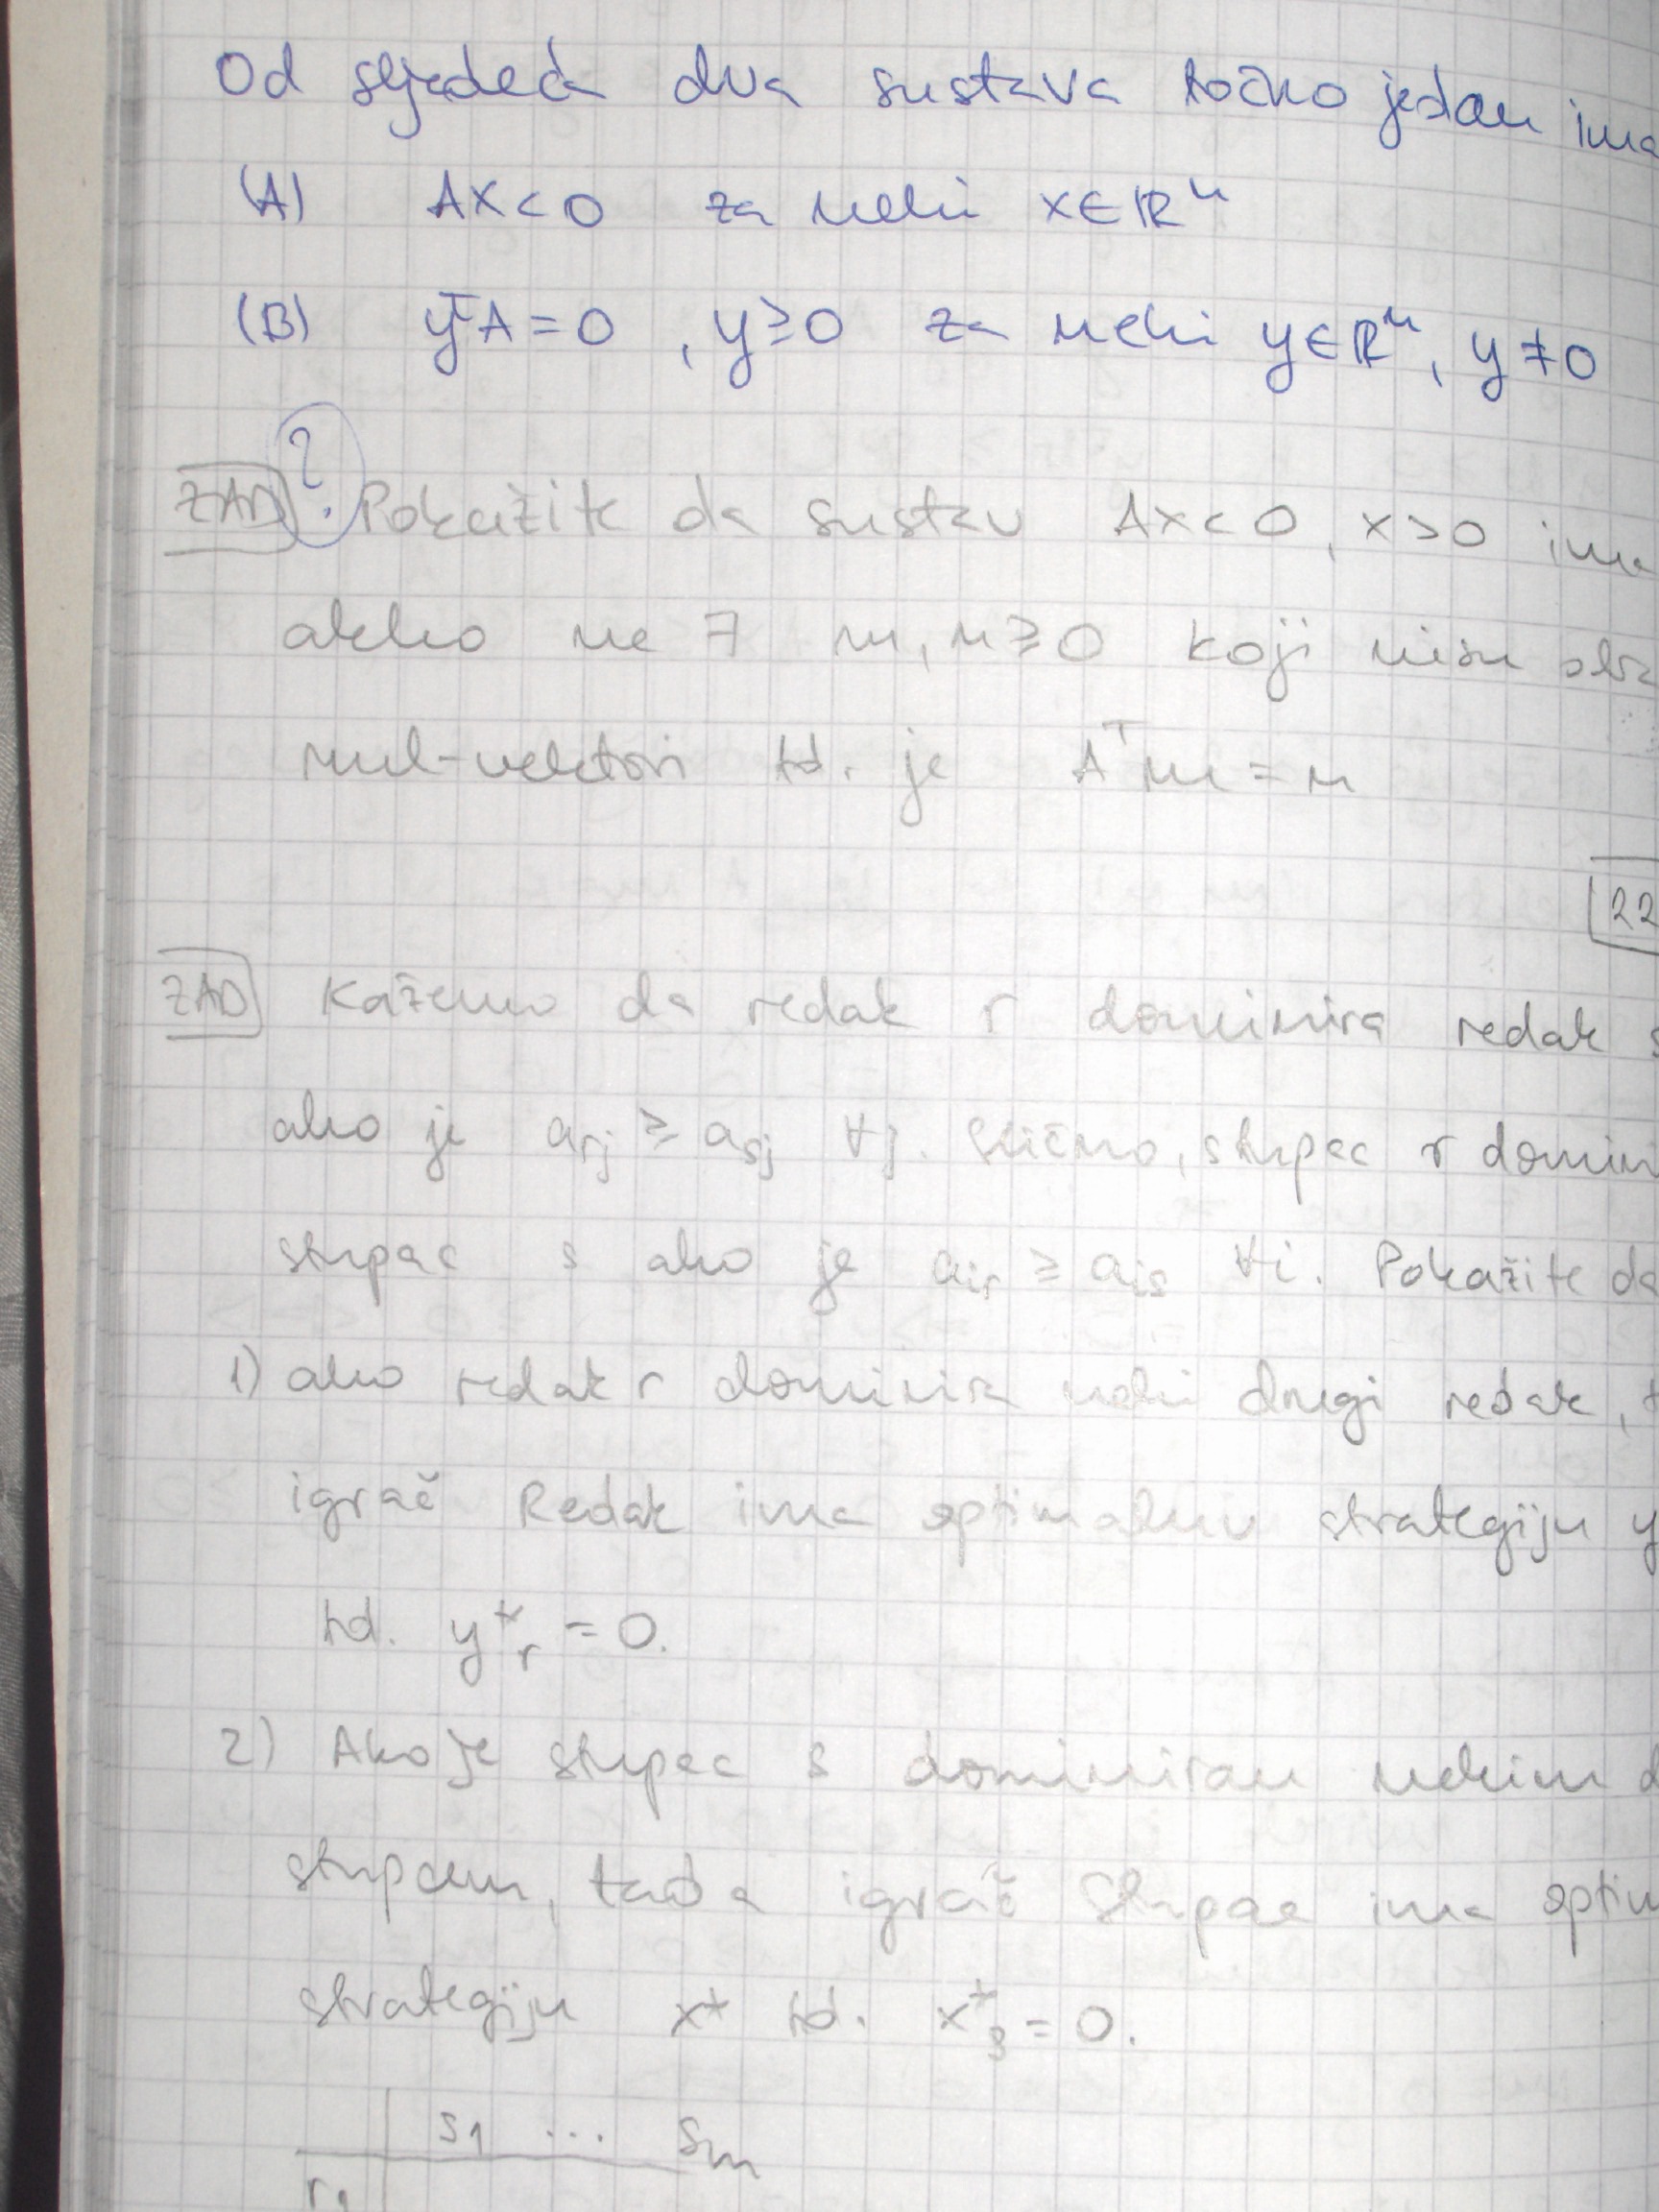 Od sljedeća dva sustava točno jedan ima
(A) Ax<0 za neki x∈ℝⁿ
(B) yᵀA=0, y≥0 za neki y∈ℝᵐ, y≠0
?
ZAD. Pokažite da sustav Ax<0, x>0 ima
akko ne ∃ m, n≥0 koji nisu oba
nul-vektori td. je Aᵀm=n
22
ZAD Kažemo da redak r dominira redak s
ako je a_rj ≥ a_sj ∀j. Slično, stupac r domini
stupac s ako je a_ir ≥ a_is ∀i. Pokažite da
1) ako redak r dominira neki drugi redak, t
igrač Redak ima optimalnu strategiju y
td. y*_r = 0.
2) Ako je stupac s dominiran nekim d
stupcem, tada igrač Stupac ima optim
strategiju x* td. x*_s = 0.
s₁ ... sₘ
r₁